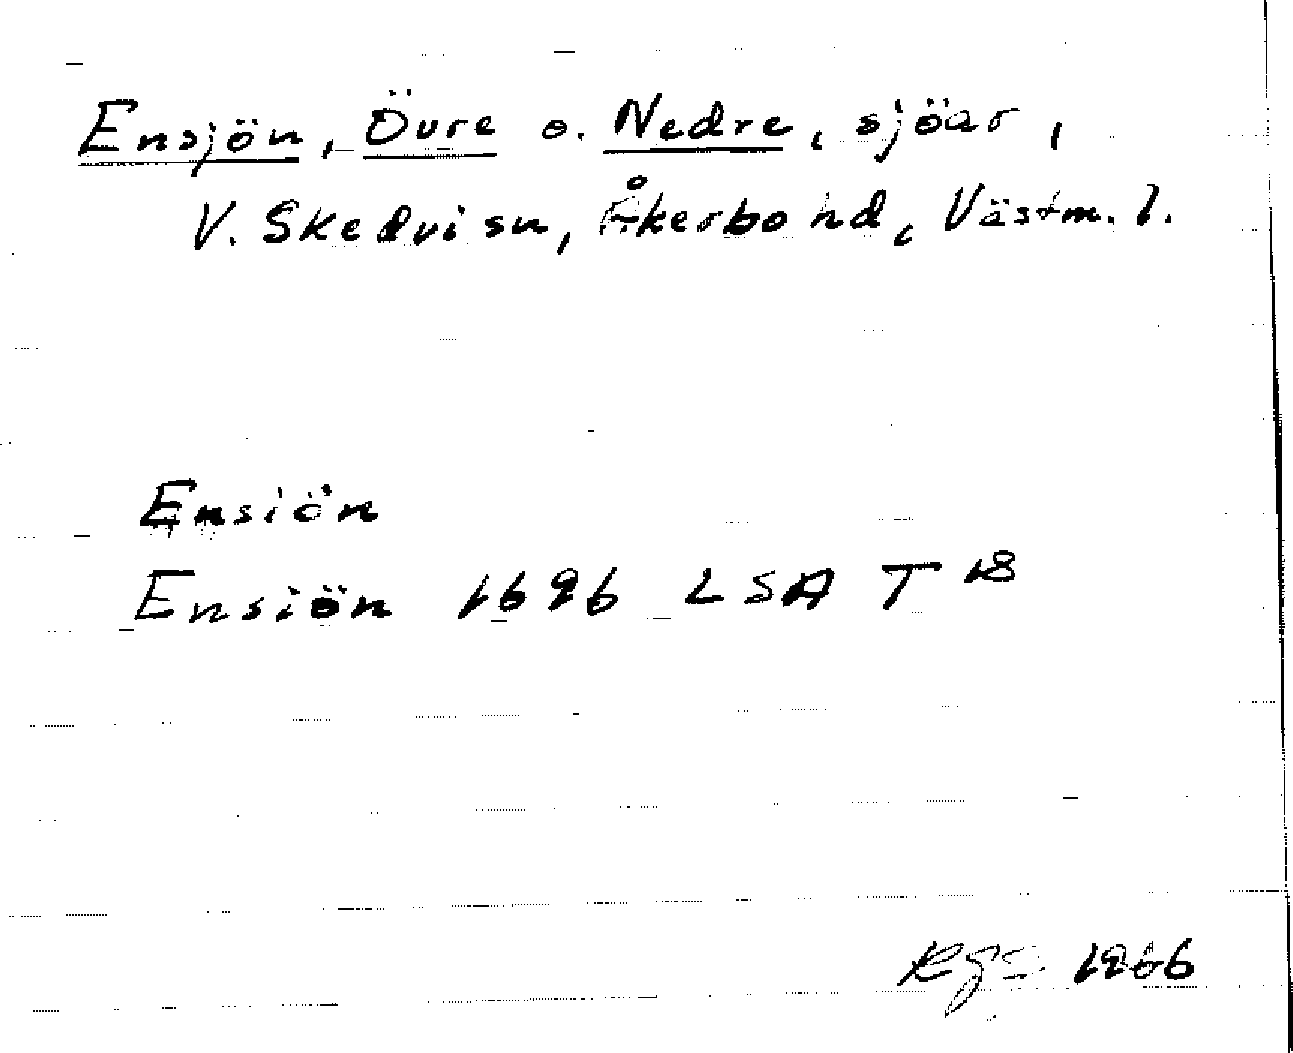 Ensjön, Övre o. Nedre, sjöar,
V. Skedvi sn, Åkerbo hd, Västm. l.
Ensiön
Ensiön 1696 LSA T 18
1966